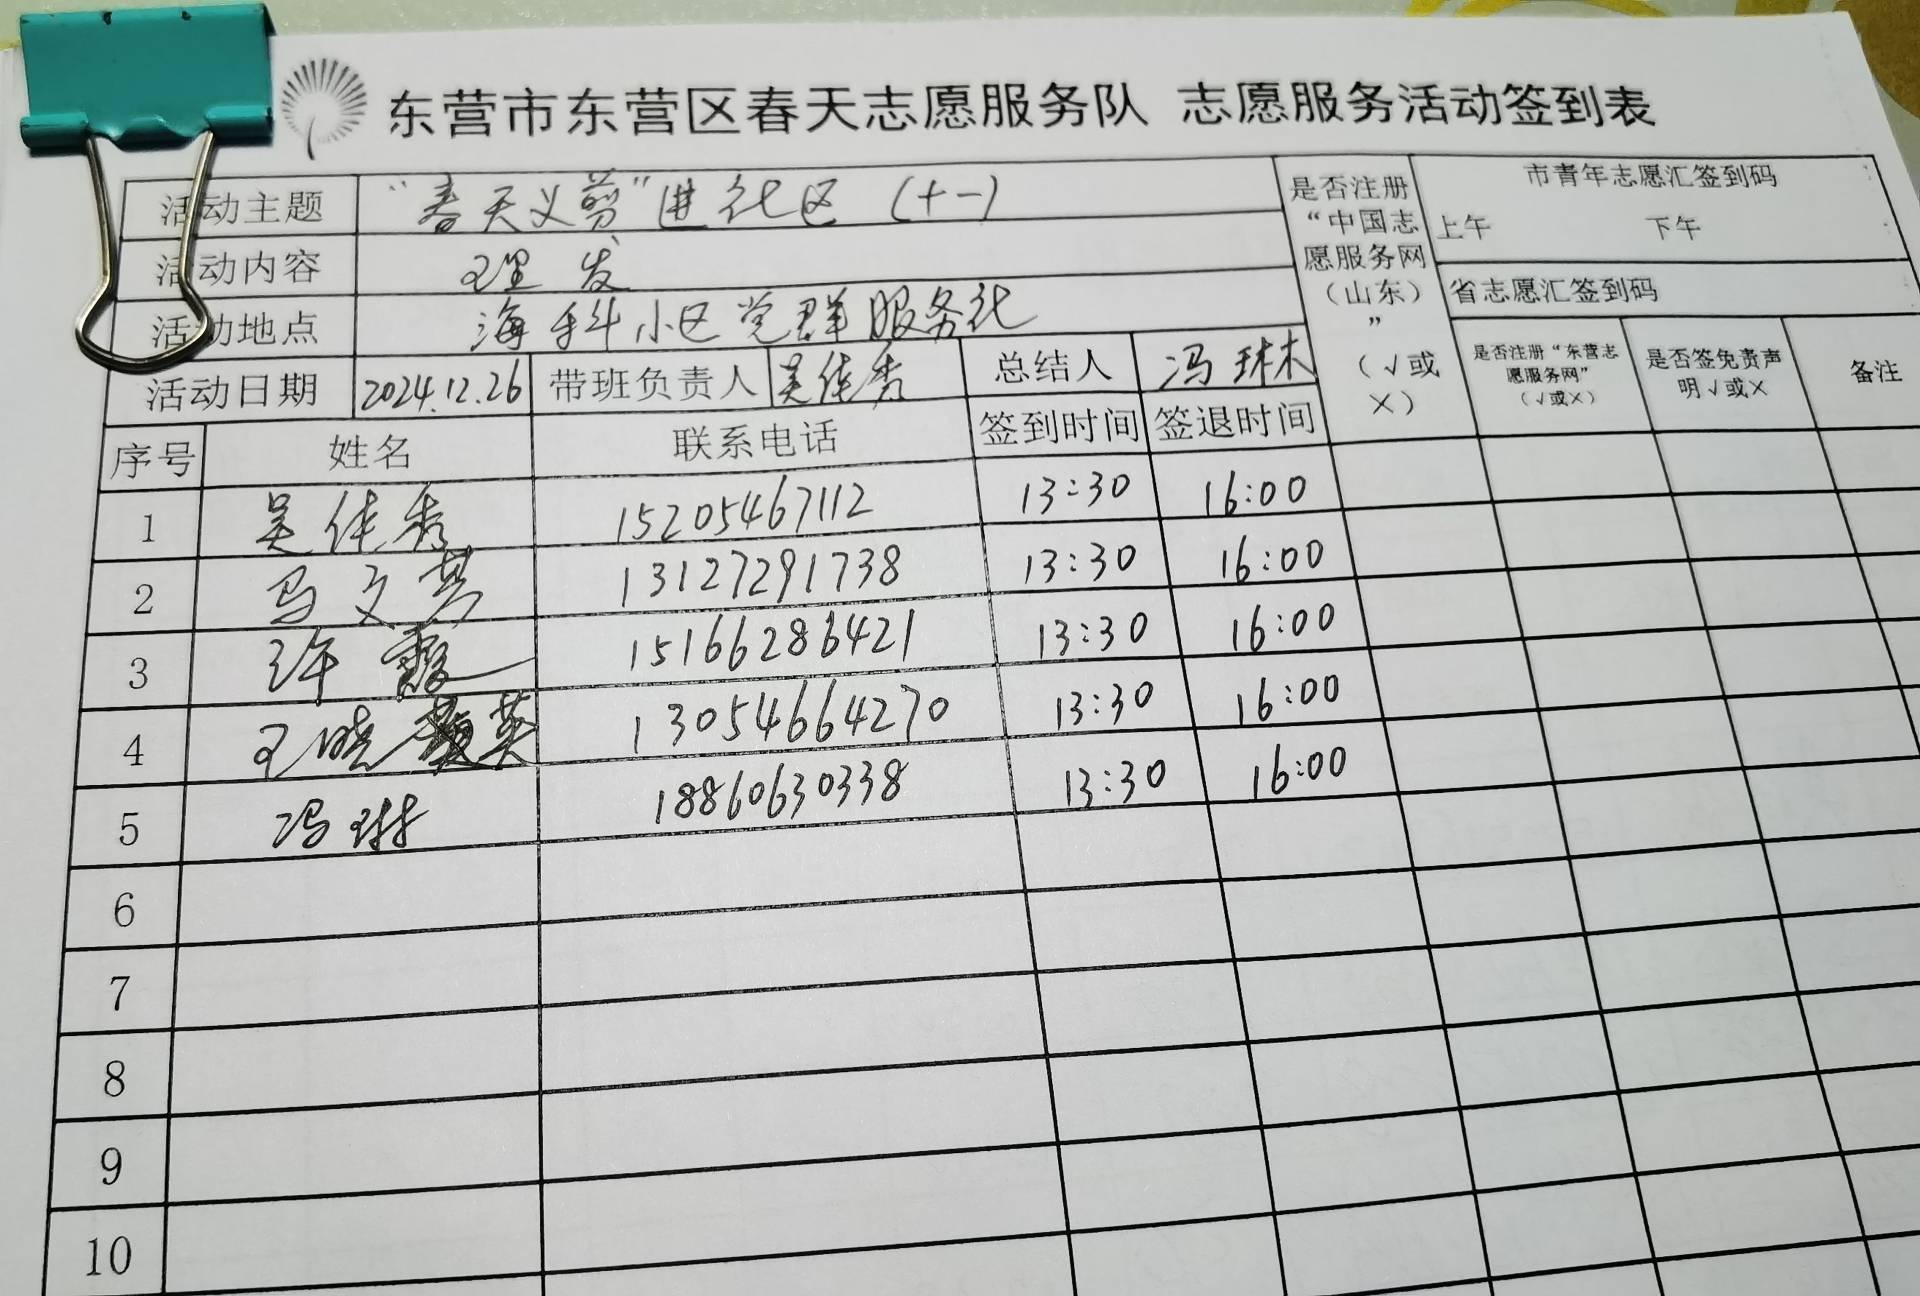 东营市东营区春天志愿服务队 志愿服务活动签到表
活动主题 “春天义剪”进社区（十一）
活动内容 理发
活动地点 海科小区党群服务社
活动日期 2024.12.26 带班负责人 吴佳秀 总结人 冯琳
是否注册“中国志愿服务网（山东）”（√或×）
市青年志愿汇签到码
上午 下午
省志愿汇签到码
是否注册“东营志愿服务网”（√或×） 是否签免责声明√或× 备注
序号 姓名 联系电话 签到时间 签退时间
1 吴佳秀 15205467112 13:30 16:00
2 马文芳 13127291738 13:30 16:00
3 许霞 15166286421 13:30 16:00
4 王晓英 13054664270 13:30 16:00
5 冯琳 18860630338 13:30 16:00
6
7
8
9
10